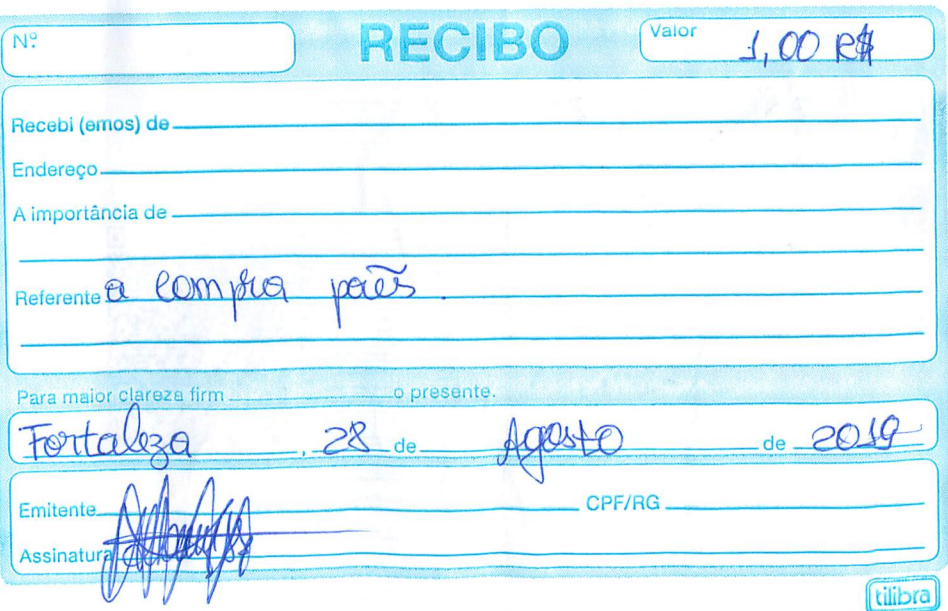 Nº RECIBO Valor 1,00 R$
Recebi (emos) de
Endereço
A importância de
Referente a compra pães.
Para maior clareza firm o presente.
Fortaleza, 28 de Agosto de 2019
Emitente CPF/RG
Assinatura
tilibra